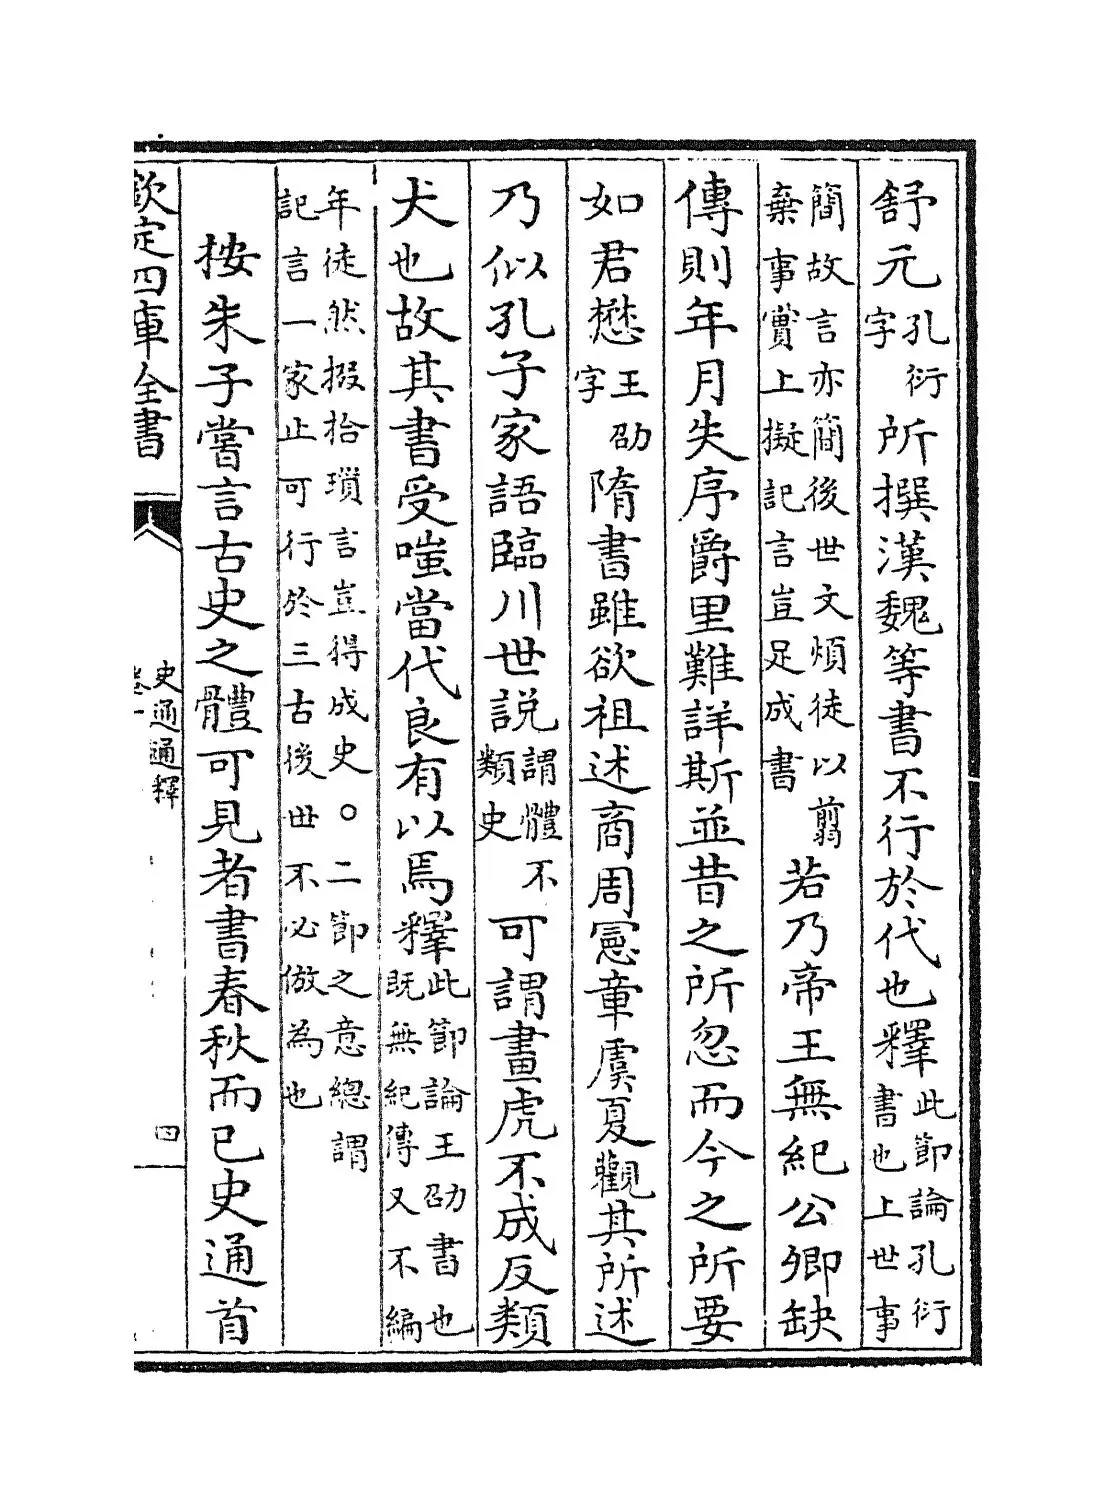 舒元孔衍字所撰漢魏等書不行於代也釋此節論孔衍書也上世事
簡故言亦簡後世文煩徒以翦棄事賞上擬記言豈足成書若乃帝王無紀公卿缺
傳則年月失序爵里難詳斯並昔之所忽而今之所要
如君懋王劭字隋書雖欲祖述商周憲章虞夏觀其所述
乃似孔子家語臨川世説謂體不類史可謂畫虎不成反類
犬也故其書受嗤當代良有以焉釋此節論王劭書也既無紀傳又不編
年徒然掇拾瑣言豈得成史○二節之意總謂記言一家止可行於三古後世不必倣為也
按朱子嘗言古史之體可見者書春秋而已史通首
欽定四庫全書
史通通釋
卷一
四